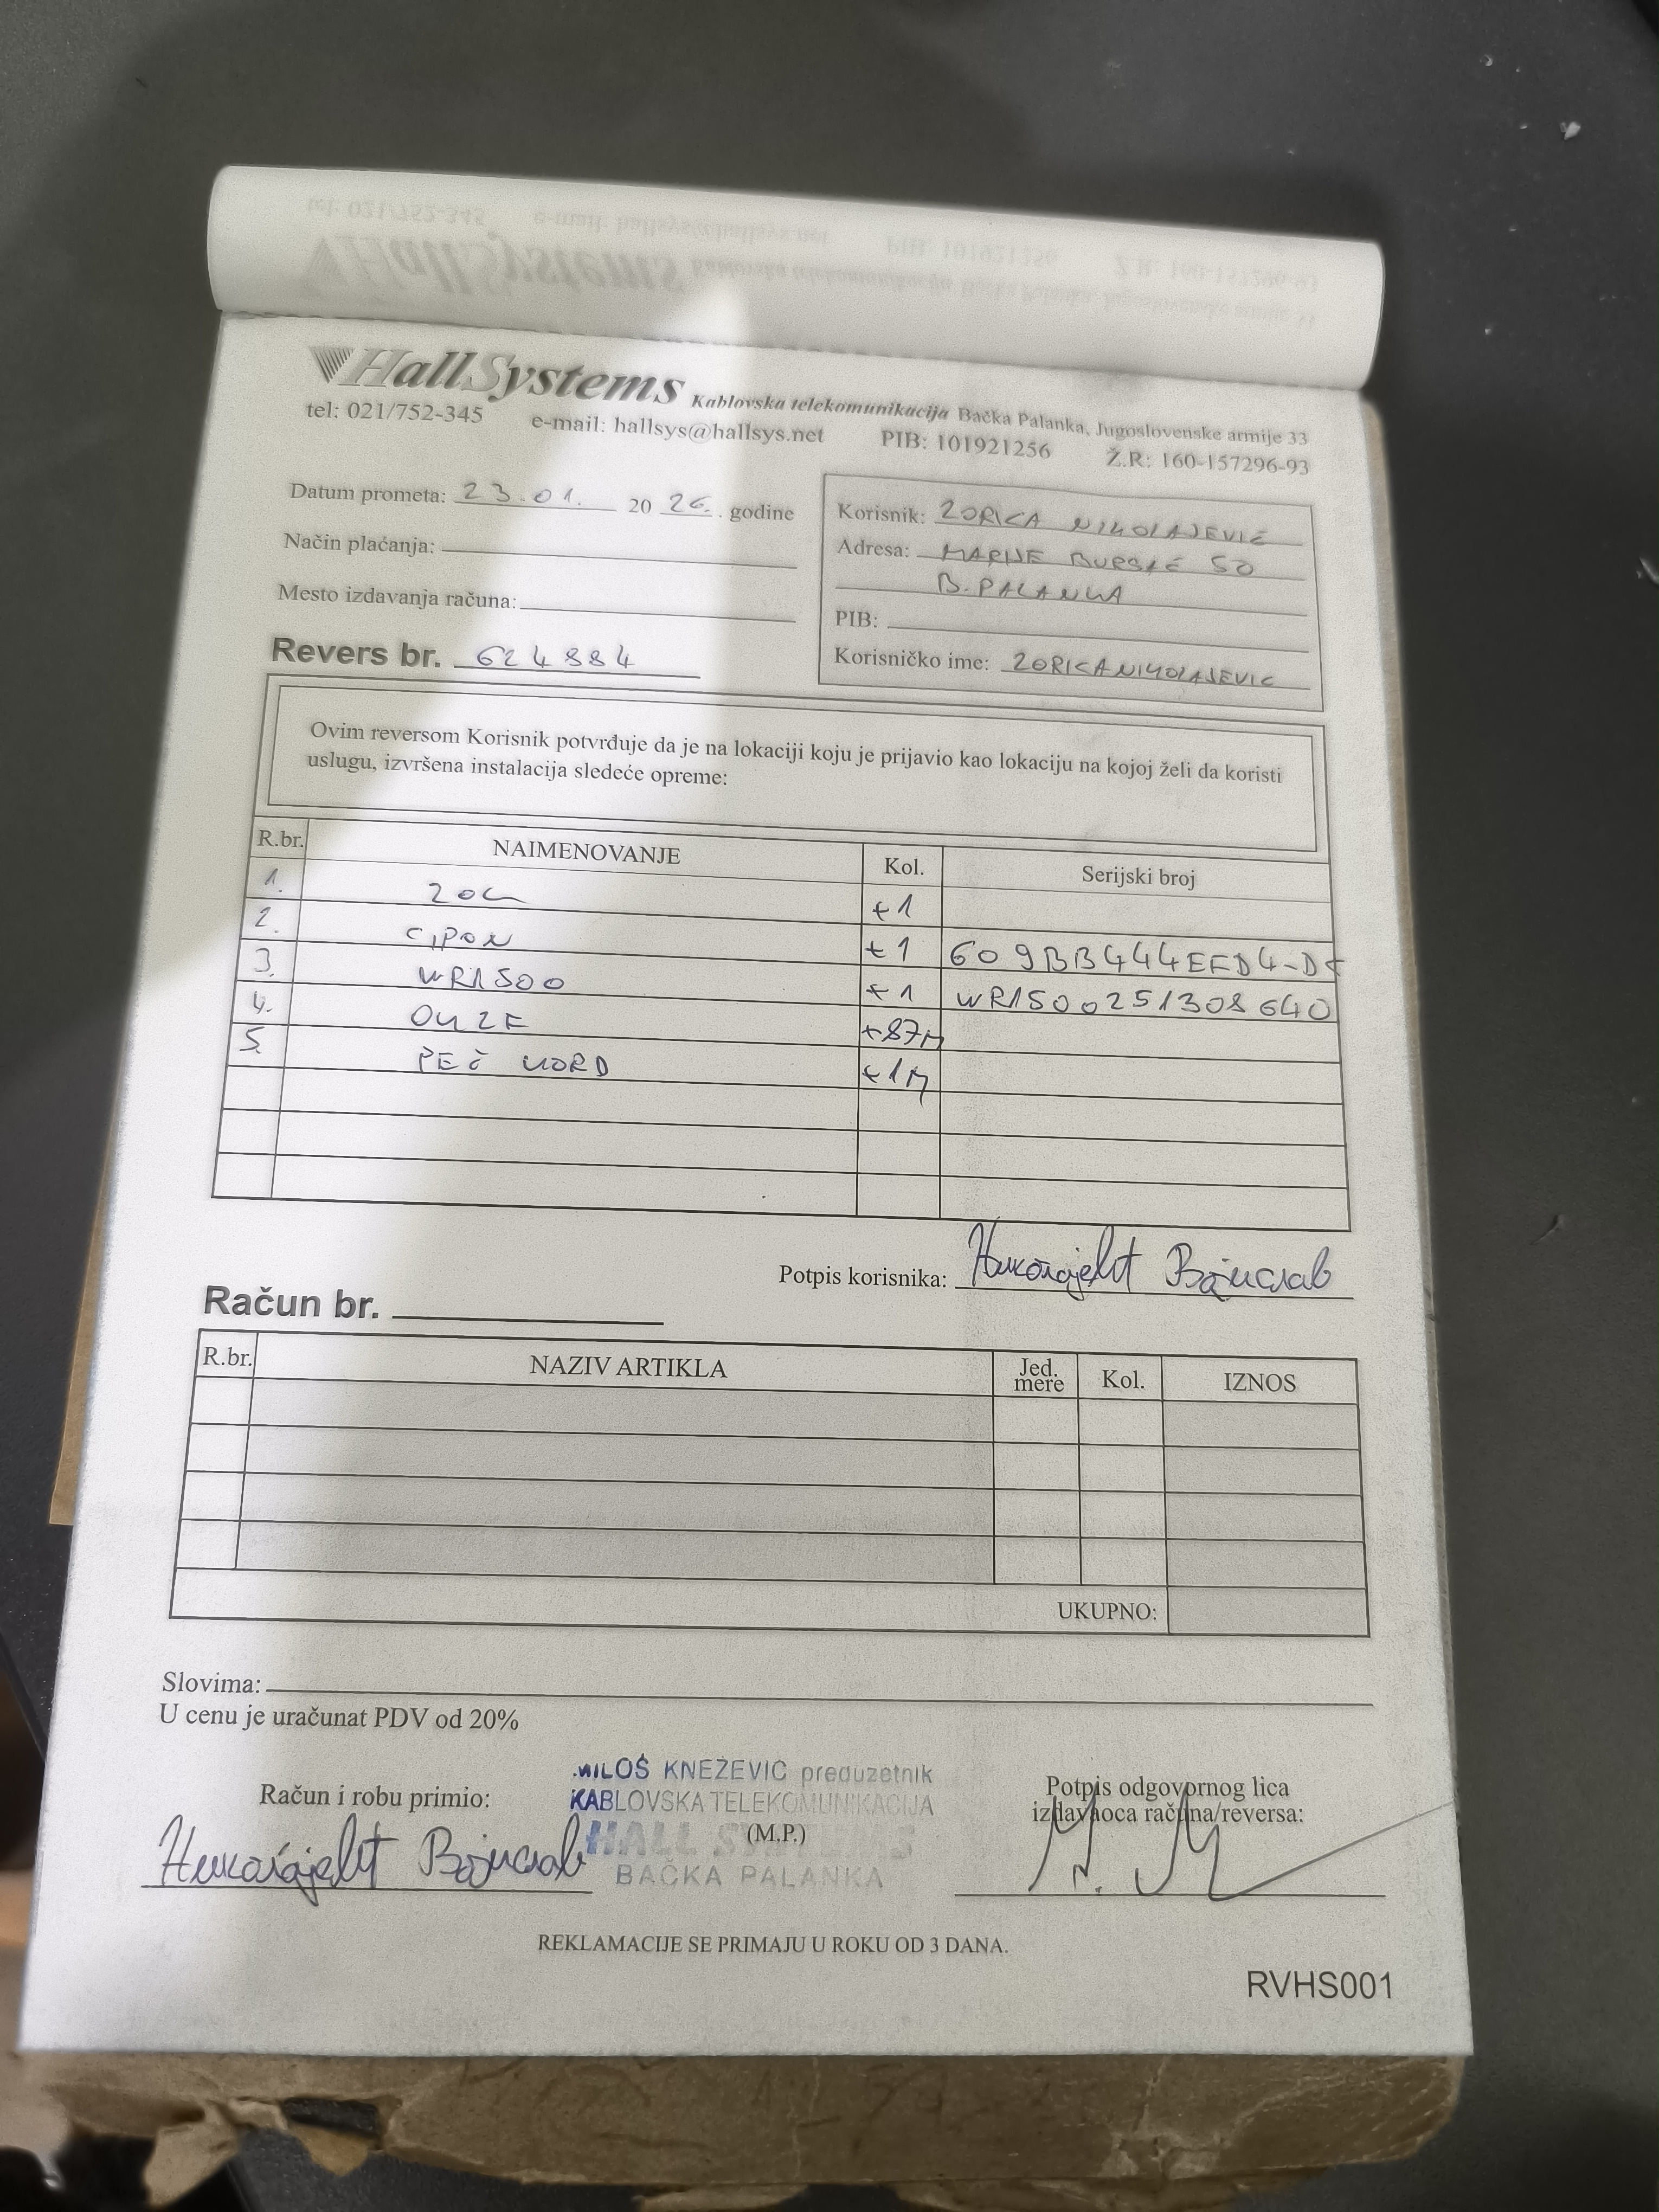 HallSystems Kablovska telekomunikacija Bačka Palanka, Jugoslovenske armije 33
tel: 021/752-345 e-mail: hallsys@hallsys.net PIB: 101921256 Ž.R: 160-157296-93
Datum prometa: 23.01. 20 26. godine
Način plaćanja:
Mesto izdavanja računa:
Revers br. 624884
Korisnik: ZORICA NIKOLAJEVIĆ
Adresa: MARIJE BURSAĆ 50
B. PALANKA
PIB:
Korisničko ime: ZORICANIKOLAJEVIC
Ovim reversom Korisnik potvrđuje da je na lokaciji koju je prijavio kao lokaciju na kojoj želi da koristi
uslugu, izvršena instalacija sledeće opreme:
R.br. NAIMENOVANJE Kol. Serijski broj
1. ZOK +1
2. +1
3. WR1500 +1 WR1500251308640
4. +87M
5. PEČ KORD +1M
Potpis korisnika: Николајевић Војислав
Račun br.
R.br. NAZIV ARTIKLA Jed. mere Kol. IZNOS
UKUPNO:
Slovima:
U cenu je uračunat PDV od 20%
Račun i robu primio:
Николајевић Војислав
MILOŠ KNEŽEVIĆ preduzetnik
KABLOVSKA TELEKOMUNIKACIJA
(M.P.)
HALL SYSTEMS
BAČKA PALANKA
Potpis odgovornog lica
izdavaoca računa/reversa:
REKLAMACIJE SE PRIMAJU U ROKU OD 3 DANA.
RVHS001